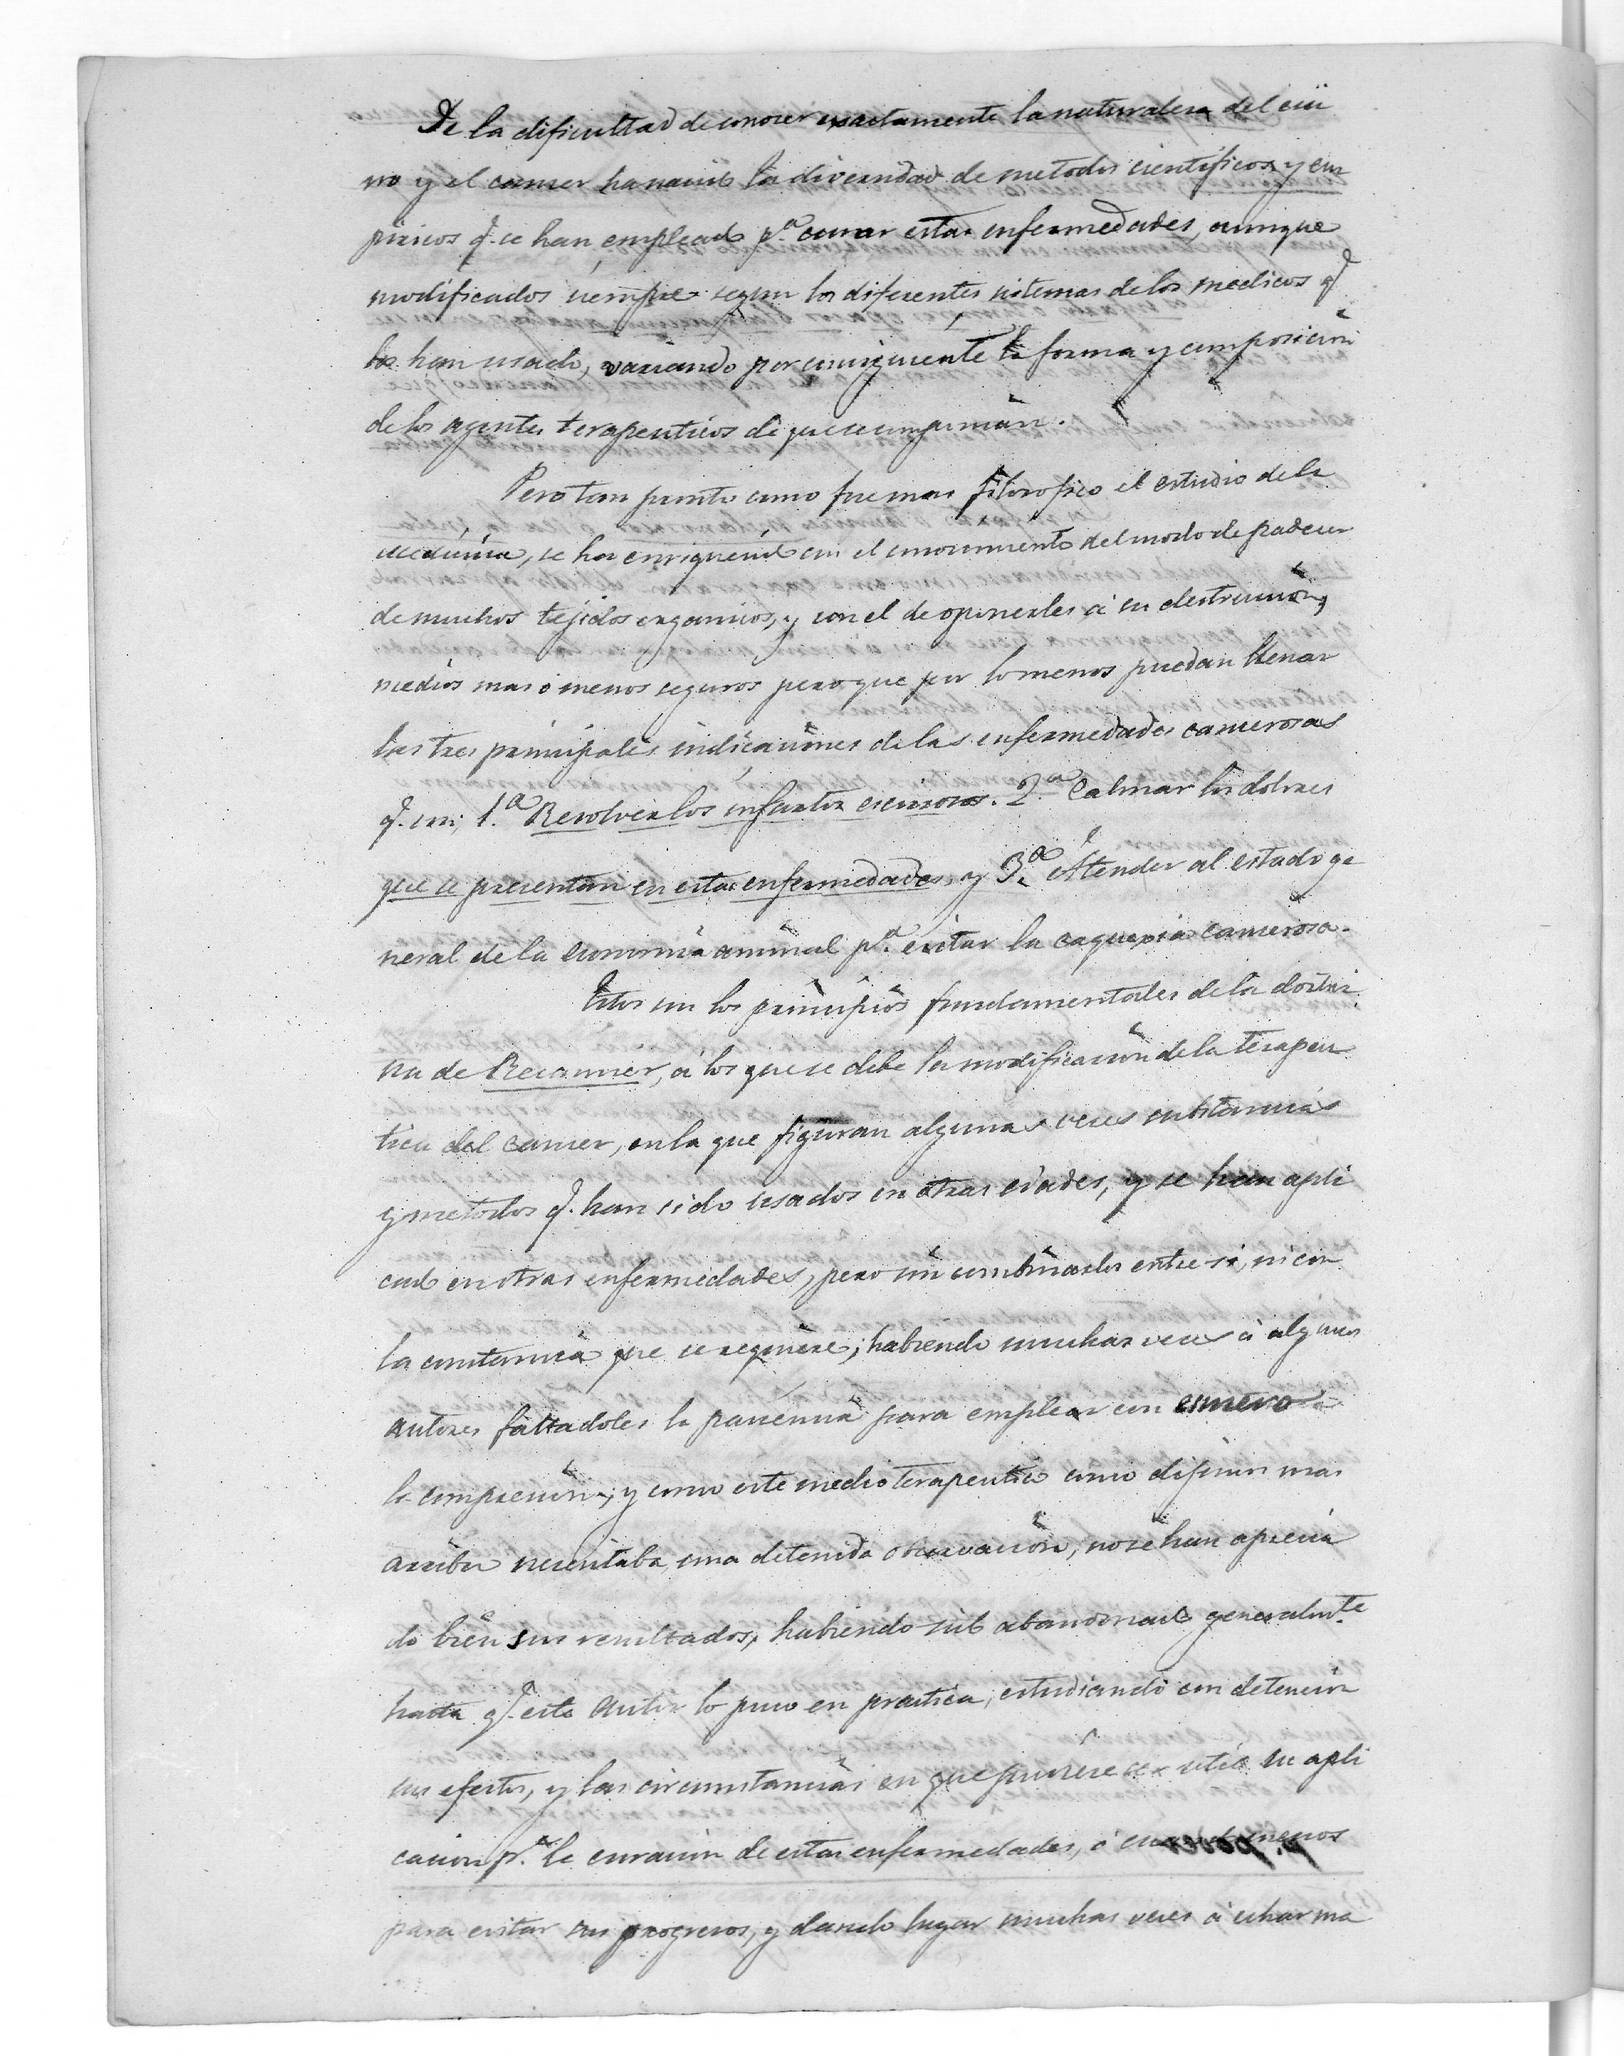 De la dificultad de conocer exactamente la naturaleza del cirr
ro y el cancer ha nacido la diversidad de metodos cientificos y em
piricos q.e se han empleado p.a curar estas enfermedades, aunque
modificados siempre segun los diferentes sistemas de los medicos q.e
los han usado, variando por consiguiente la forma y composicion
de los agentes terapeuticos de que se componian.
Pero tan pronto como fue mas filosofico el estudio de la
medicina, se ha enriquecido con el conocimiento del modo de padecer
de muchos tejidos organicos, y con el de oponerles á su destruccion,
medios mas o menos seguros pero que por lo menos puedan llenar
las tres principales indicaciones de las enfermedades cancerosas
q.e son; 1.a Resolver los infartos cirrosos. 2.a Calmar los dolores
que se presentan en estas enfermedades, y 3.a Atender al estado ge
neral de la economia animal p.a evitar la caquexia cancerosa.
Estos son los principios fundamentales de la doctri
na de Recamier, á los que se debe la modificacion de la terapeu
tica del cancer, en la que figuran algunas veces substancias
y metodos q.e han sido usados en otras edades, y se han apli
cado en otras enfermedades, pero sin combinarlos entre si, ni con
la constancia que se requiere; habiendo muchas veces á algunos
autores faltadoles la paciencia para emplear con esmero
la compresion, y como este medio terapeutico como dijimos mas
arriba necesitaba una detenida observacion, no se han aprecia
do bien sus resultados, habiendo sido abandonado generalm.te
hasta q.e este autor lo puso en practica, estudiando con detencion
sus efectos, y las circunstancias en que pudiese ser util su apli
cacion p.a la curacion de estas enfermedades, ó cuando menos
para evitar sus progresos, y dando lugar muchas veces á echar ma